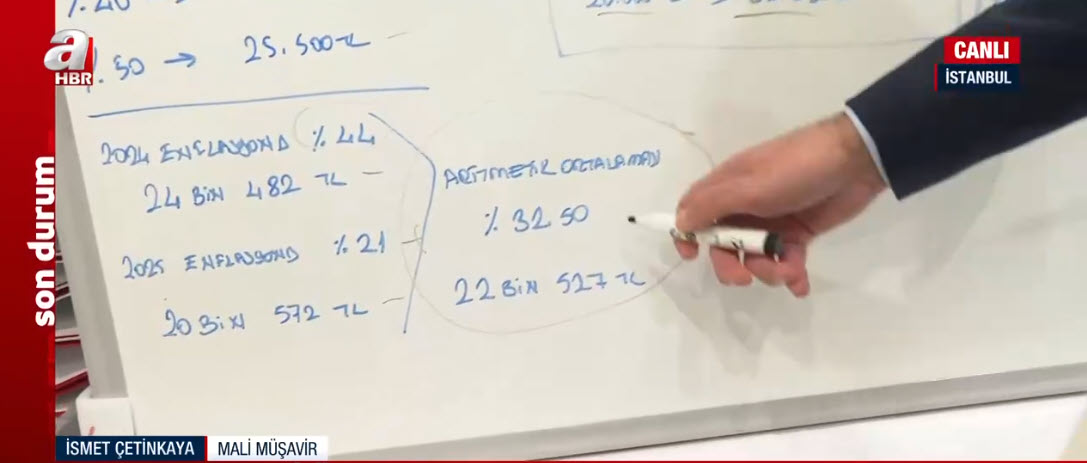 %.50 → 25.500 TL
2024 ENFLASYONA %44
24 BİN 482 TL
2025 ENFLASYONA %21
20 BİN 572 TL
ARİTMETİK ORTALAMAN
%32 50
22 BİN 527 TL
a
HBR
CANLI
İSTANBUL
son durum
İSMET ÇETİNKAYA
MALİ MÜŞAVİR